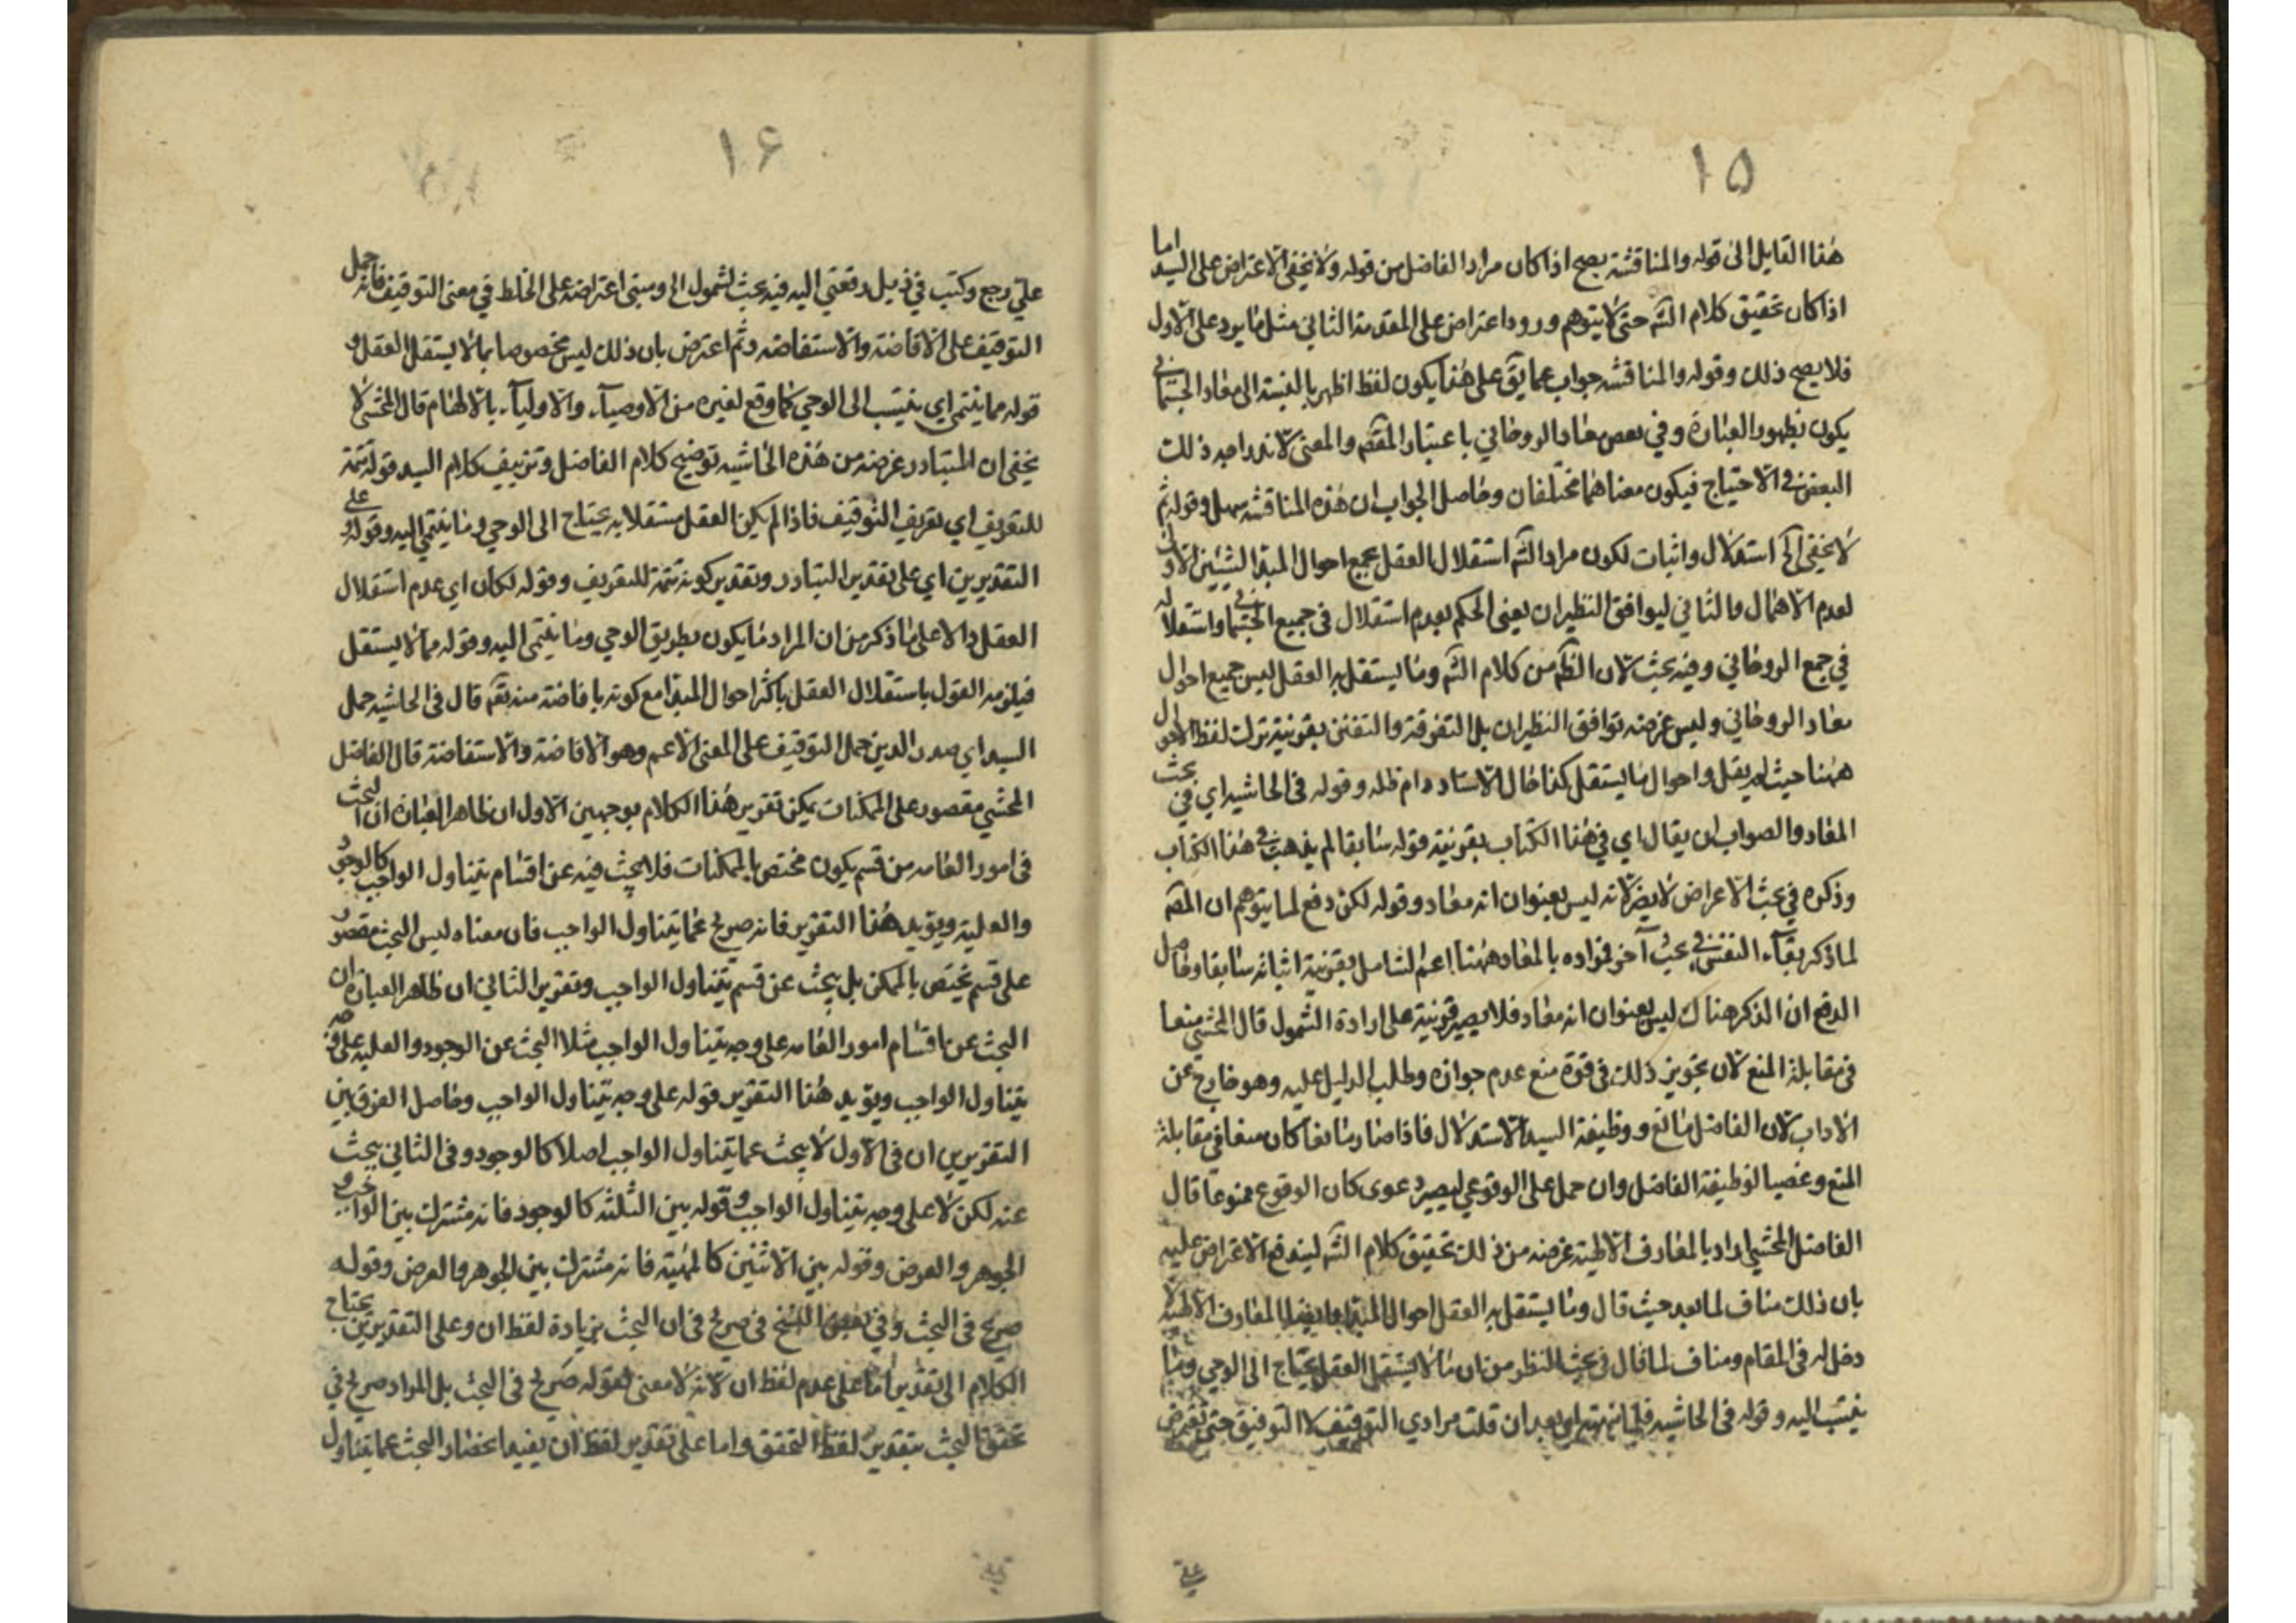 ١٥
هذا القايل الى قوله والمناقشة يصح اذا كان مراد الفاضل من قوله ولا يخفى الاعتراض على السيد اما
اذا كان تحقيق كلام الشه حتى لا يتوهم ورود اعتراض على المقدمة الثاني مثل ما يرد على الاول
فلا يصح ذلك وقوله والمناقشه جواب عما يق على هذا يكون لفظ اظهر بالنسبة الى معاد الجسماني
يكون بظهور العبارة وفي بعض معاد الروحاني باعتبار المقصم والمعنى لاندراجه ذلك
البعض في الاحتياج فيكون معناهما مختلفان وحاصل الجواب ان هذه المناقشه سهل وقوله ثم
لا يخفى الخ استدلال واثبات لكون مراد الشه استقلال العقل بجميع احوال المبدا الشيئين الاول
لعدم الاهمال والثاني ليوافق النظيران يعنى الحكم بعدم استقلال في جميع الجسماني واستقلاله
في جمع الروحاني وفيه بحث لان الظم من كلام الشه وما يستقل به العقل ليس جميع احوال
معاد الروحاني وليس غرضه توافق النظيران بل التفرقة والتفنن بقرينة ترك لفظ الاحوال
ههنا حيث لم يقل واحوال ما يستقل كذا قال الاستاد دام ظله وقوله في الحاشيه اي في بحث
المعاد والصواب ان يقال اي في هذا الكتاب بقرينة قوله سابقا لم يذهب في هذا الكتاب
وذكره في بحث الاعراض لا يضر لانه ليس بعنوان انه معاد وقوله لكن دفع لما يتوهم ان المصم
لما ذكر بقاء النفس في بحث آخر فمراده بالمعاد ههنا اعم لشامل بقرينة اثباته سابقا وحاصل
الدفع ان الذكر هناك ليس بعنوان انه معاد فلا يصير قرينة على ارادة الشمول قال المحشي منعا
في مقابلة المنع لان تجويز ذلك في قوة منع عدم جوازه وطلب الدليل عليه وهو خارج عن
الاداب لان الفاضل مانع ووظيفة السيد الاستدلال فاذا صار مانعا كان منعا في مقابلة
المنع وغصبا لوظيفة الفاضل وان حمل على الوقوعي ليصير دعوى كان الوقوع ممنوعا قال
الفاضل المحشي اراد بالمعارف الالهية غرضه من ذلك تحقيق كلام الشه ليندفع الاعتراض عليه
بان ذلك مناف لما بعد حيث قال وما يستقل به العقل احوال المبدا المعارف الالهية لا
دخل له في المقام ومناف لما قال في بحث النظر من ان ما لا يستقل العقل يحتاج الى الوحي وما
ينتسب اليه وقوله في الحاشيه بعد ان قلت مرادي التوقيف لا التوفيق حتى
على
١٦
علي رجع وكتب في ذيل رقعتي اليه فيه بحث لشمول الخ ومبنى اعتراضه على الخلط في معنى التوقيف فانه حمل
التوقيف على الافاضة والاستفاضه وثم اعترض بان ذلك ليس مخصوصا بما لا يستقل العقل و
قوله مما ينتمي اي ينتسب الى الوحي كما وقع لغيره من الاوصياء والاولياء بالالهام قال المحشي لا
يخفى ان المتبادر غرضه من هذه الحاشيه توضيح كلام الفاضل وتزييف كلام السيد قوله تتمة
للتعريف اي تعريف التوقيف فاذا لم يكن العقل مستقلا به يحتاج الى الوحي وما ينتمي اليه وقوله وعلى
التقديرين اي على تقدير التبادر وتقدير كونه تتمة للتعريف وقوله لكان اي عدم استقلال
العقل دالا على ما ذكر من ان المراد ما يكون بطريق الوحي وما ينتمي اليه وقوله مما لا يستقل
فيلزمه القول باستقلال العقل باكثر احوال المبدا مع كونه بافاضة منه تقم قال في الحاشيه حمل
السيد اي صدر الدين حمل التوقيف على المعنى الاعم وهو الافاضة والاستفاضة قال الفاضل
المحشي مقصور على الممكنات يمكن تقرير هذا الكلام بوجهين الاول ان ظاهر العبارة ان البحث
في امور العامه من قسم يكون مختص بالممكنات فلا يبحث فيه عن اقسام يتناول الواجب كالوجود
والعلية ويؤيد هذا التقرير فانه صريح عما يتناول الواجب فان معناه ليس البحث مقصور
على قسم يختص بالممكن بل يبحث عن قسم يتناول الواجب وتقرير الثاني ان ظاهر العبارة ان
البحث عن اقسام امور العامه على وجه يتناول الواجب مثلا البحث عن الوجود والعليه على وجه
يتناول الواجب ويؤيد هذا التقرير قوله على وجه يتناول الواجب وحاصل الفرق بين
التقريرين ان في الاول لا يبحث عما يتناول الواجب اصلا كالوجود وفي الثاني يبحث
عنه لكن لا على وجه يتناول الواجب وقوله بين الثلثة كالوجود فانه مشترك بين الواجب و
الجوهر والعرض وقوله بين الاثنين كالمهية فانه مشترك بين الجوهر والعرض وقوله
صريح في البحث وفي بعض النسخ في صريح في ان البحث بزيادة لفظ ان وعلى التقديرين يحتاج
الكلام الى تقدير اما على عدم لفظ ان لانه لا معنى لقوله صريح في البحث بل المراد صريح في
تحقق البحث بتقدير لفظ التحقق واما على تقدير لفظ ان يفيد انحصار البحث عما يتناول